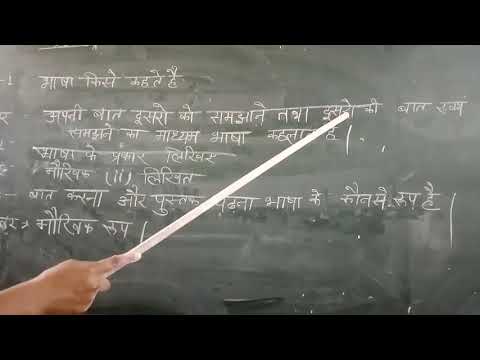 -1 भाषा किसे कहते है
र - अपनी बात दूसरो को समझाने तथा दूसरो की बात स्वयं
समझने का माध्यम भाषा कहलाता है |
भाषा के प्रकार लिखिए
मौखिक (ii) लिखित
बात करना और पुस्तक पढ़ना भाषा के कौन से रूप है
मौखिक रूप |